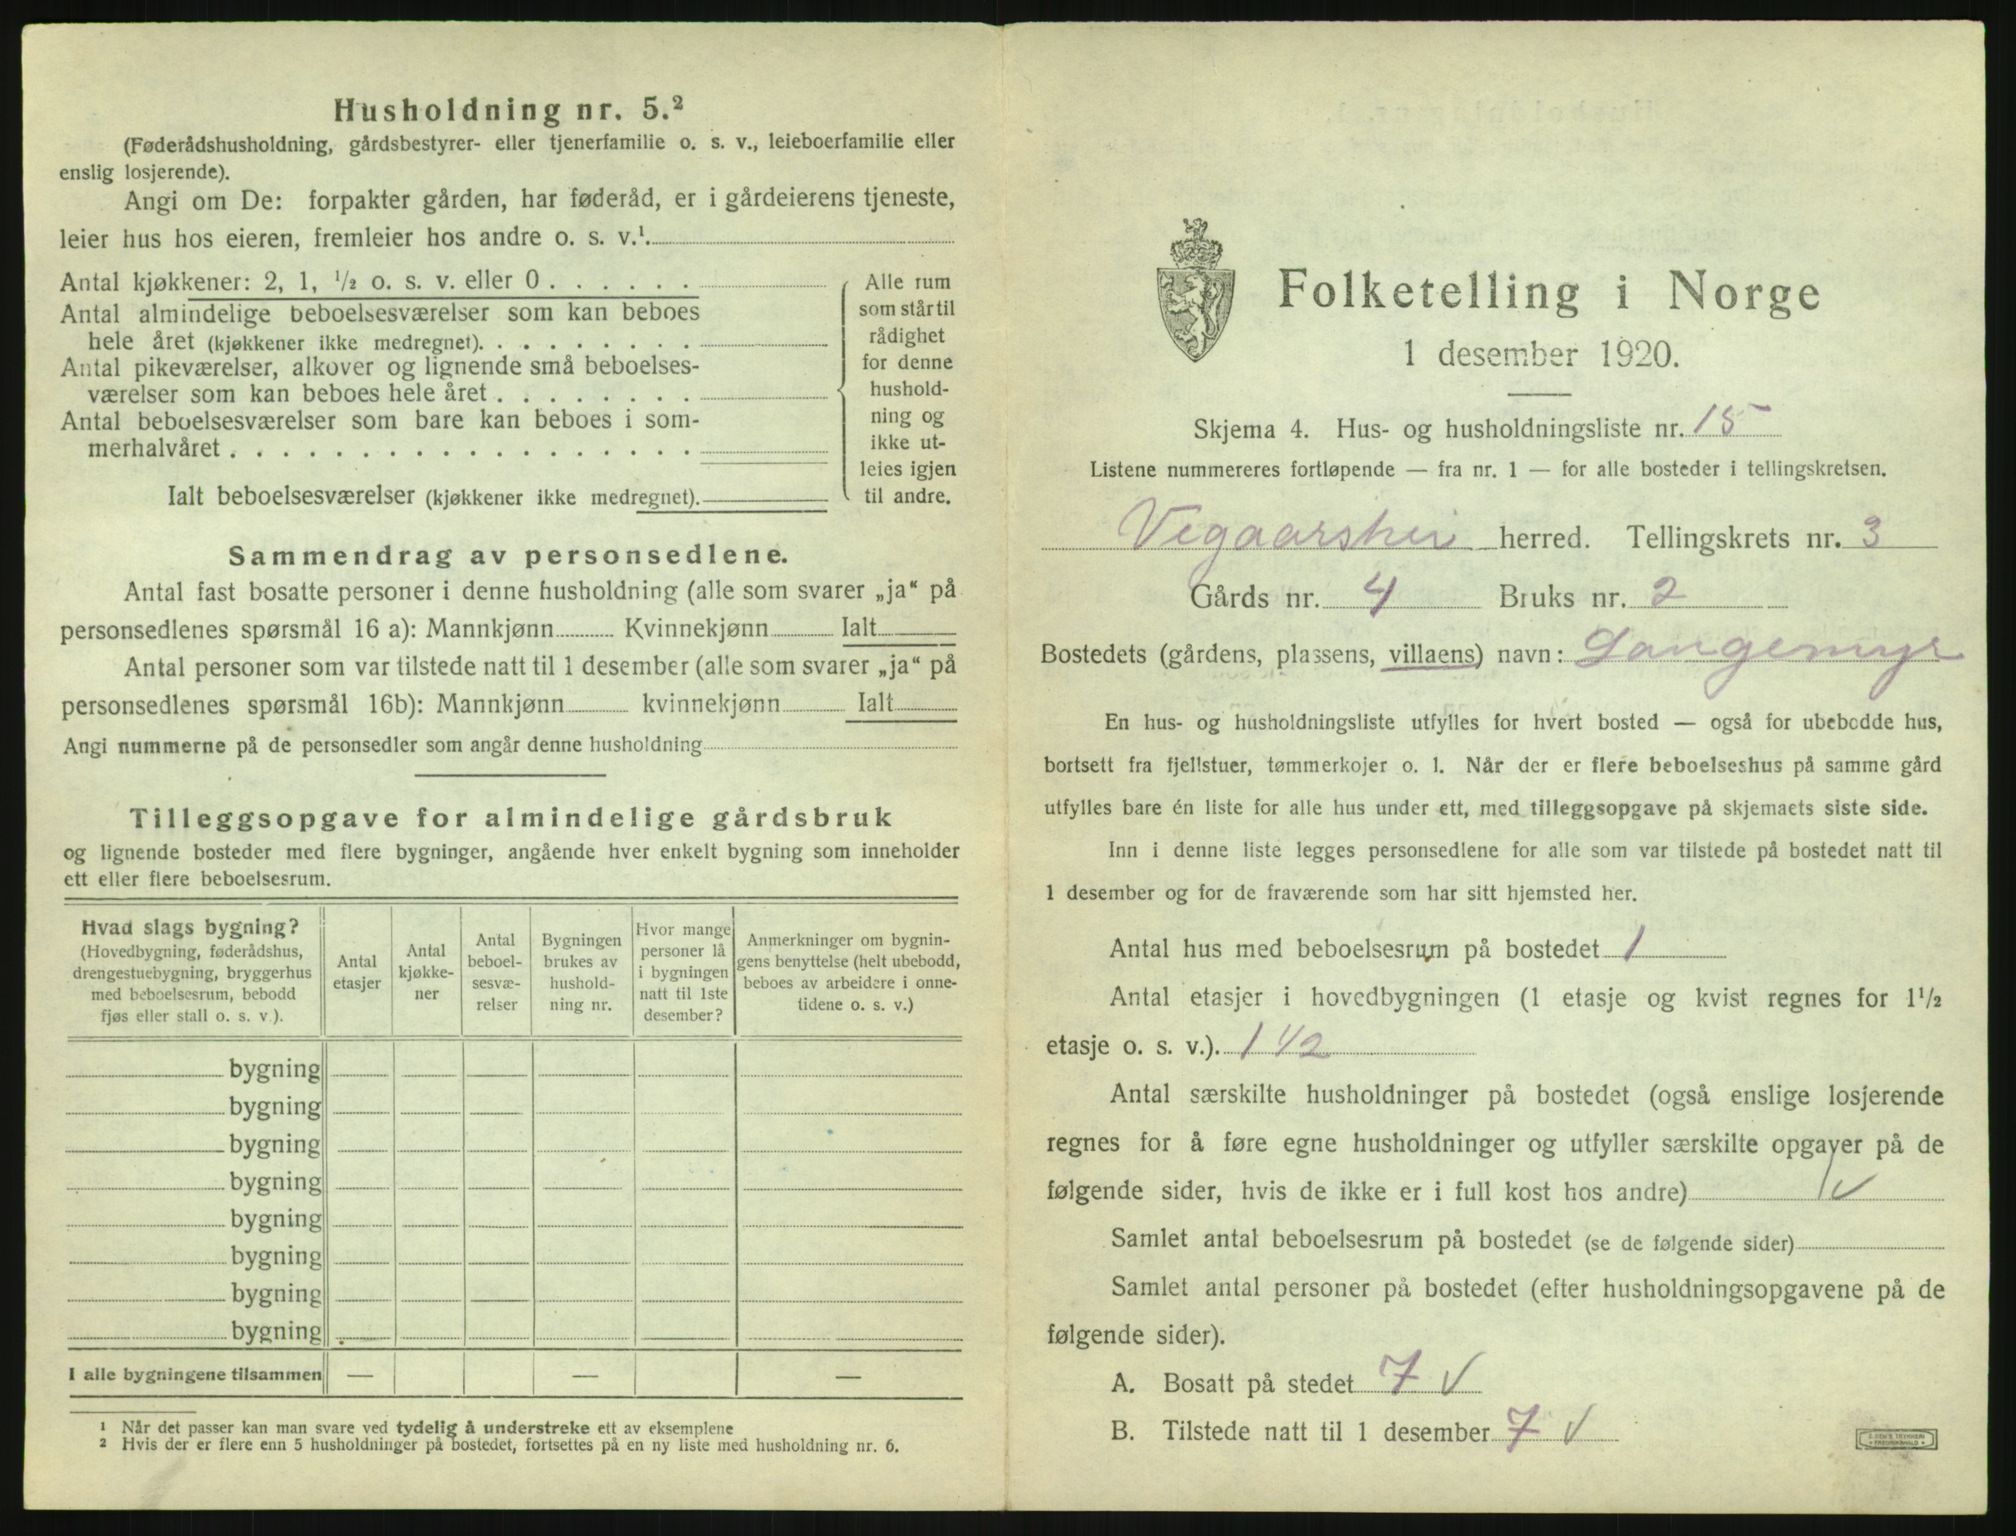 Husholdning nr. 5.²
(Føderådshusholdning, gårdsbestyrer- eller tjenerfamilie o. s. v., leieboerfamilie eller
enslig losjerende).
Angi om De: forpakter gården, har føderåd, er i gårdeierens tjeneste,
leier hus hos eieren, fremleier hos andre o. s. v.¹.
Antal kjøkkener: 2, 1, ½ o. s. v. eller 0
Antal almindelige beboelsesværelser som kan beboes
hele året (kjøkkener ikke medregnet).
Antal pikeværelser, alkover og lignende små beboelses-
værelser som kan beboes hele året
Antal beboelsesværelser som bare kan beboes i som-
merhalvåret
Ialt beboelsesværelser (kjøkkener ikke medregnet).
Alle rum
som står til
rådighet
for denne
hushold-
ning og
ikke ut-
leies igjen
til andre.
Sammendrag av personsedlene.
Antal fast bosatte personer i denne husholdning (alle som svarer „ja“ på
personsedlenes spørsmål 16 a): Mannkjønn Kvinnekjønn Ialt
Antal personer som var tilstede natt til 1 desember (alle som svarer „ja“ på
personsedlenes spørsmål 16b): Mannkjønn kvinnekjønn Ialt
Angi nummerne på de personsedler som angår denne husholdning
Tilleggsopgave for almindelige gårdsbruk
og lignende bosteder med flere bygninger, angående hver enkelt bygning som inneholder
ett eller flere beboelsesrum.
Hvad slags bygning?
(Hovedbygning, føderådshus,
drengestuebygning, bryggerhus
med beboelsesrum, bebodd
fjøs eller stall o. s. v.).
Antal
etasjer
Antal
kjøkke-
ner
Antal
beboel-
sesvæ-
relser
Bygningen
brukes av
hushold-
ning nr.
Hvor mange
personer lå
i bygningen
natt til 1ste
desember?
Anmerkninger om bygnin-
gens benyttelse (helt ubebodd,
beboes av arbeidere i onne-
tidene o. s. v.)
bygning
bygning
bygning
bygning
bygning
bygning
bygning
bygning
I alle bygningene tilsammen — — —
¹ Når det passer kan man svare ved tydelig å understreke ett av eksemplene
² Hvis der er flere enn 5 husholdninger på bostedet, fortsettes på en ny liste med husholdning nr. 6.
Folketelling i Norge
1 desember 1920.
Skjema 4. Hus- og husholdningsliste nr. 15
Listene nummereres fortløpende — fra nr. 1 — for alle bosteder i tellingskretsen.
Vegaarshei herred. Tellingskrets nr. 3
Gårds nr. 4 Bruks nr. 2
Bostedets (gårdens, plassens, villaens) navn: Langemyr
En hus- og husholdningsliste utfylles for hvert bosted — også for ubebodde hus,
bortsett fra fjellstuer, tømmerkojer o. l. Når der er flere beboelseshus på samme gård
utfylles bare én liste for alle hus under ett, med tilleggsopgave på skjemaets siste side.
Inn i denne liste legges personsedlene for alle som var tilstede på bostedet natt til
1 desember og for de fraværende som har sitt hjemsted her.
Antal hus med beboelsesrum på bostedet 1
Antal etasjer i hovedbygningen (1 etasje og kvist regnes for 1½
etasje o. s. v.). 1 1/2
Antal særskilte husholdninger på bostedet (også enslige losjerende
regnes for å føre egne husholdninger og utfyller særskilte opgaver på de
følgende sider, hvis de ikke er i full kost hos andre) 1 √
Samlet antal beboelsesrum på bostedet (se de følgende sider)
Samlet antal personer på bostedet (efter husholdningsopgavene på de
følgende sider).
A. Bosatt på stedet 7 √
B. Tilstede natt til 1 desember 7 √